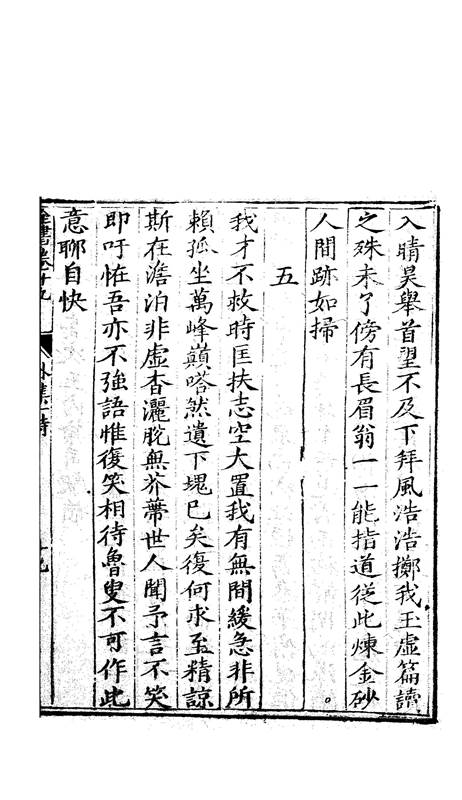 入晴昊舉首望不及下拜風浩浩擲我玉虛篇讀
之殊未了傍有長眉翁一一能指道從此煉金砂
人間跡如掃
五
我才不救時匡扶志空大置我有無間緩急非所
賴孤坐萬峰巔嗒然遺下塊已矣復何求至精諒
斯在澹泊非虛杳灑脫無芥蔕世人聞予言不笑
即吁恠吾亦不強語惟復笑相待魯叟不可作此
意聊自快
全書卷十九
外集一 詩